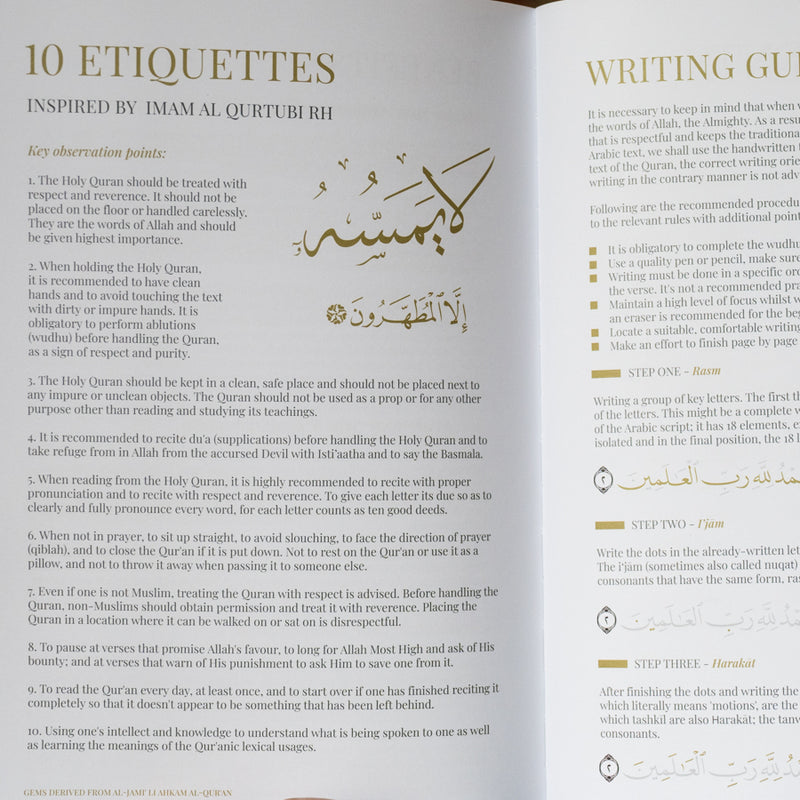 10 ETIQUETTES
INSPIRED BY IMAM AL QURTUBI RH
Key observation points:
1. The Holy Quran should be treated with
respect and reverence. It should not be
placed on the floor or handled carelessly.
They are the words of Allah and should
be given highest importance.
2. When holding the Holy Quran,
it is recommended to have clean
hands and to avoid touching the text
with dirty or impure hands. It is
obligatory to perform ablutions
(wudhu) before handling the Quran,
as a sign of respect and purity.
لَا يَمَسُّهُ
إِلَّا الْمُطَهَّرُونَ
3. The Holy Quran should be kept in a clean, safe place and should not be placed next to
any impure or unclean objects. The Quran should not be used as a prop or for any other
purpose other than reading and studying its teachings.
4. It is recommended to recite du'a (supplications) before handling the Holy Quran and to
take refuge from in Allah from the accursed Devil with Isti'aatha and to say the Basmala.
5. When reading from the Holy Quran, it is highly recommended to recite with proper
pronunciation and to recite with respect and reverence. To give each letter its due so as to
clearly and fully pronounce every word, for each letter counts as ten good deeds.
6. When not in prayer, to sit up straight, to avoid slouching, to face the direction of prayer
(qiblah), and to close the Qur'an if it is put down. Not to rest on the Qur'an or use it as a
pillow, and not to throw it away when passing it to someone else.
7. Even if one is not Muslim, treating the Quran with respect is advised. Before handling the
Quran, non-Muslims should obtain permission and treat it with reverence. Placing the
Quran in a location where it can be walked on or sat on is disrespectful.
8. To pause at verses that promise Allah's favour, to long for Allah Most High and ask of His
bounty; and at verses that warn of His punishment to ask Him to save one from it.
9. To read the Qur'an every day, at least once, and to start over if one has finished reciting it
completely so that it doesn't appear to be something that has been left behind.
10. Using one's intellect and knowledge to understand what is being spoken to one as well
as learning the meanings of the Qur'anic lexical usages.
GEMS DERIVED FROM AL-JAMI' LI AHKAM AL-QUR'AN
WRITING GUI
It is necessary to keep in mind that when
the words of Allah, the Almighty. As a resu
that is respectful and keeps the traditiona
Arabic text, we shall use the handwritten
text of the Quran, the correct writing orie
writing in the contrary manner is not adv
Following are the recommended procedu
to the relevant rules with additional point
It is obligatory to complete the wudhu
Use a quality pen or pencil, make sure
Writing must be done in a specific or
the verse. It's not a recommended pra
Maintain a high level of focus whilst w
an eraser is recommended for the beg
Locate a suitable, comfortable writing
Make an effort to finish page by page
STEP ONE - Rasm
Writing a group of key letters. The first th
of the letters. This might be a complete w
of the Arabic script; it has 18 elements, e
isolated and in the final position, the 18 l
مْدُ لِلَّهِ رَبِّ الْعَٰلَمِينَ ٢
STEP TWO - I'jām
Write the dots in the already-written let
The i'jām (sometimes also called nuqat)
consonants that have the same form, ras
مْدُ لِلَّهِ رَبِّ الْعَٰلَمِينَ ٢
STEP THREE - Harakāt
After finishing the dots and writing the
which literally means 'motions', are the
which tashkīl are also Harakāt; the tanw
consonants.
مْدُ لِلَّهِ رَبِّ الْعَٰلَمِينَ ٢